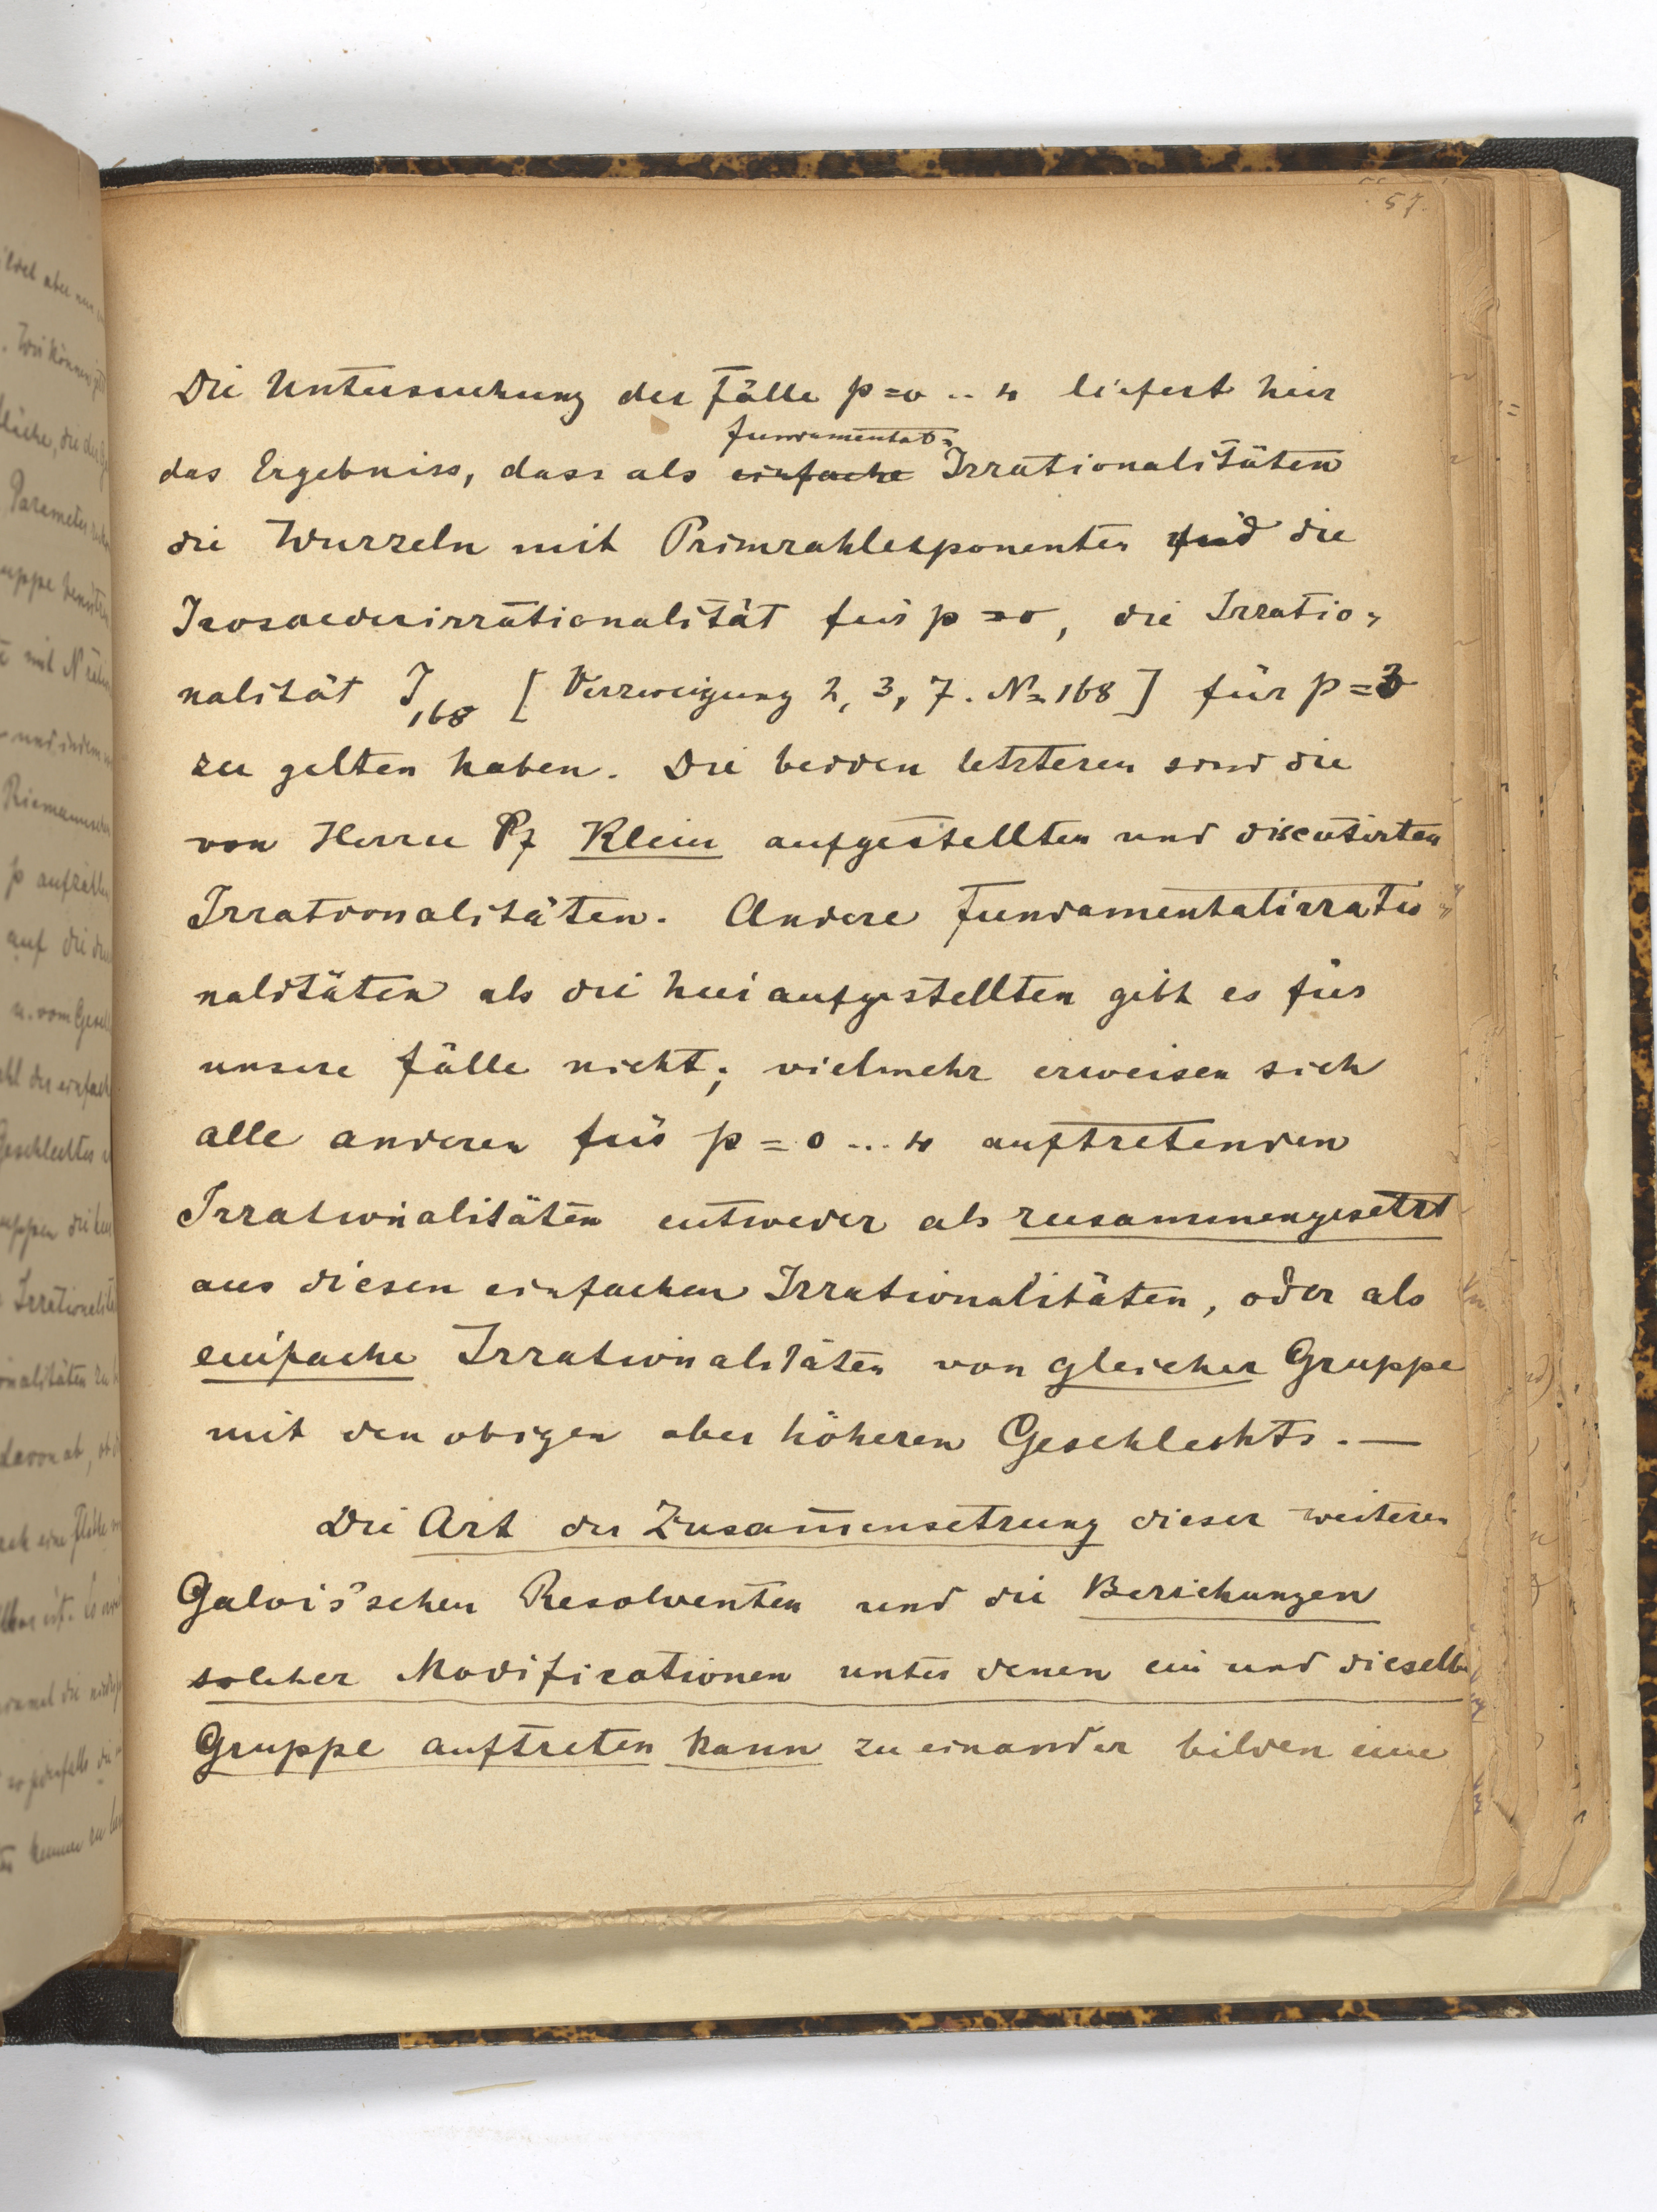 57.
Die Untersuchung der Fälle p=0 .. 4 liefert hier
fundamental-
das Ergebniss, dass als einfache Irrationalitäten
die Wurzeln mit Primzahlexponenten und die
Icosaederirrationalität für p=0, die Irratio-
nalität J168 [Verzweigung 2, 3, 7. N=168] für p=3
zu gelten haben. Die beiden letzteren sind die
von Herrn Pf Klein aufgestellten und discutirten
Irrationalitäten. Andere Fundamentalirratio-
nalitäten als die hier aufgestellten gibt es für
unsere Fälle nicht; vielmehr erweisen sich
alle anderen für p=0...4 auftretenden
Irrationalitäten entweder als zusammengesetzt
aus diesen einfachen Irrationalitäten, oder als
einfache Irrationalitäten von gleicher Gruppe
mit den obigen aber höheren Geschlechts. —
Die Art der Zusam̄ensetzung dieser weiteren
Galois'schen Resolventen und die Beziehungen
solcher Modificationen unter denen ein und dieselbe
Gruppe auftreten kann zu einander bilden eine